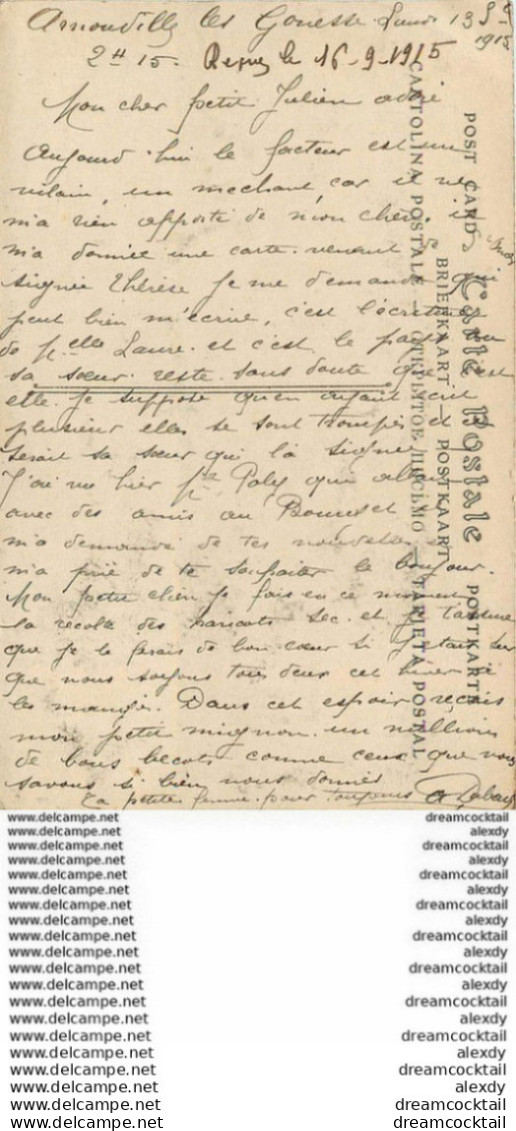 Arnouville les Gonesse Lundi 13 S
1915
2H 15. Reçue le 16-9-1915
Mon cher petit Julien adoré
Aujourd'hui le facteur est un
vilain, un mechant, car il ne
m'a rien apporté de mon chéri. il
m'a donnée une carte venant de
signée Thérèse je me demande qui
peut bien m'ecrire, c'est l'écriture
de Melle Laure. et c'est le
sa sœur. reste sans doute que c'est
elle. je suppose qu'en ayant écrit
plusieur elles se sont trompés et
serait sa sœur qui l'a signée
J'ai vu hier Paly qui allait
avec des amis au Bourget
m'a demandé de tes nouvelles et
m'a prié de te souhaiter le bonjour.
Mon petit chien je fais en ce moment
la recolte des haricots sec. et je t'assure
que je le ferais de bon cœur si j'etais sur
que nous soyons tous deux cet hiver a
les manger. Dans cet espoir reçois
mon petit mignon un million
de bons becots comme ceux que nous
savons si bien nous donner
Ta petite femme pour toujours
POST CARD
Carte Postale
POSTKARTE
BRIEFKAART — POSTKAART
CARTOLINA POSTALE — ОТКРЫТОЕ ПИСЬМО — TARJETA POSTAL
www.delcampe.net dreamcocktail
www.delcampe.net alexdy
www.delcampe.net dreamcocktail
www.delcampe.net alexdy
www.delcampe.net dreamcocktail
www.delcampe.net alexdy
www.delcampe.net dreamcocktail
www.delcampe.net alexdy
www.delcampe.net dreamcocktail
www.delcampe.net alexdy
www.delcampe.net dreamcocktail
www.delcampe.net alexdy
www.delcampe.net dreamcocktail
www.delcampe.net alexdy
www.delcampe.net dreamcocktail
www.delcampe.net alexdy
www.delcampe.net dreamcocktail
www.delcampe.net alexdy
www.delcampe.net dreamcocktail
www.delcampe.net dreamcocktail